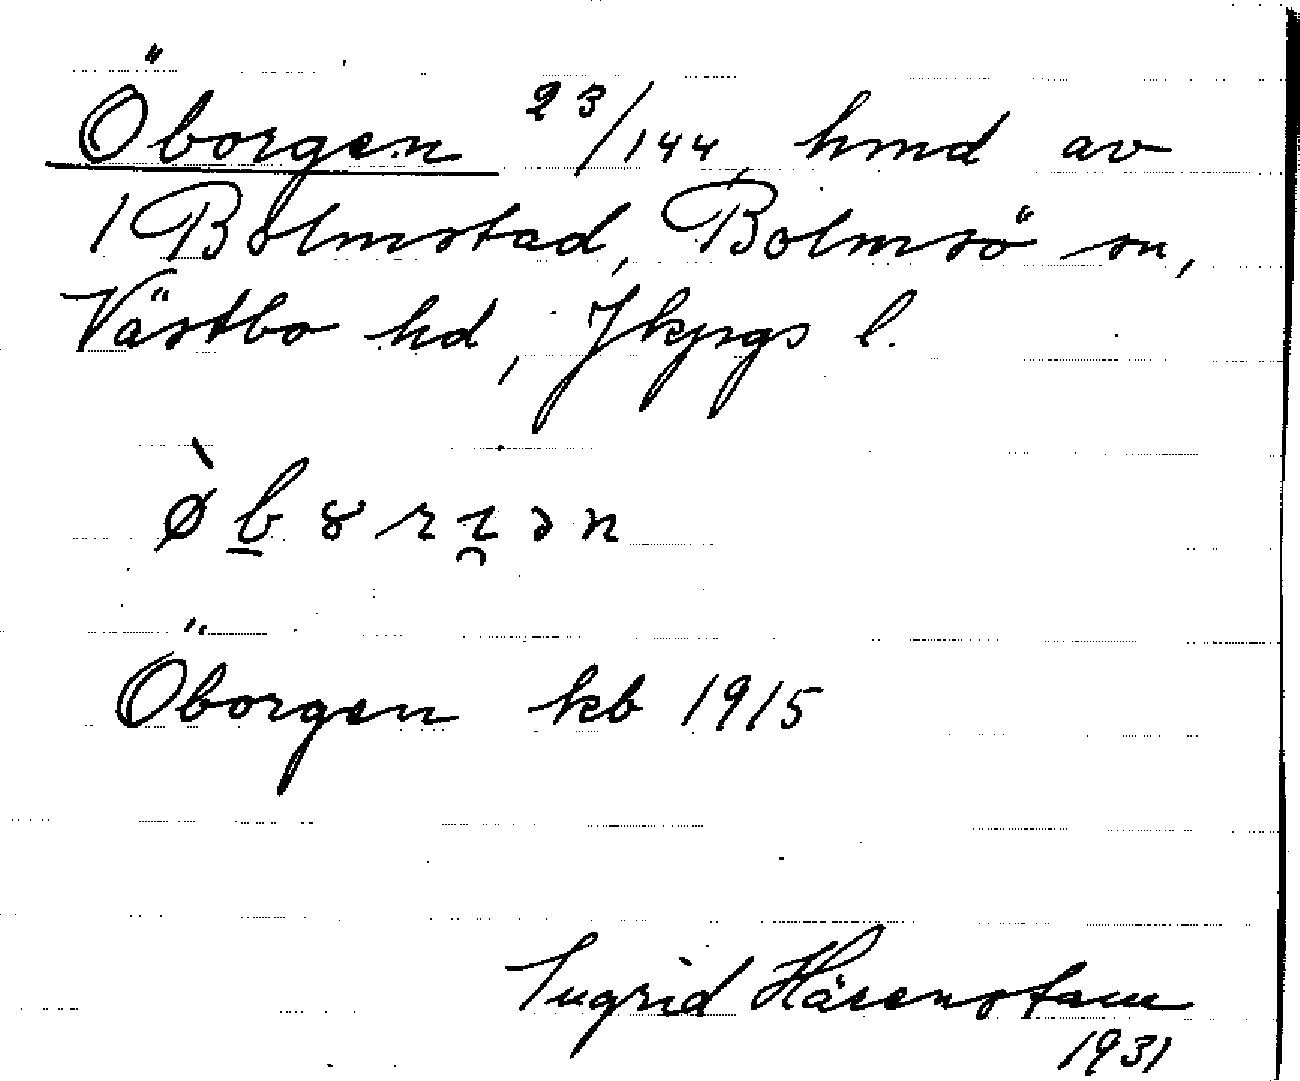 Öborgen 23/144, hmd av
1 Bolmstad, Bolmsö sn,
Västbo hd, Jkpgs l.
Öborgen kb 1915
Ingrid Härenstam
1931